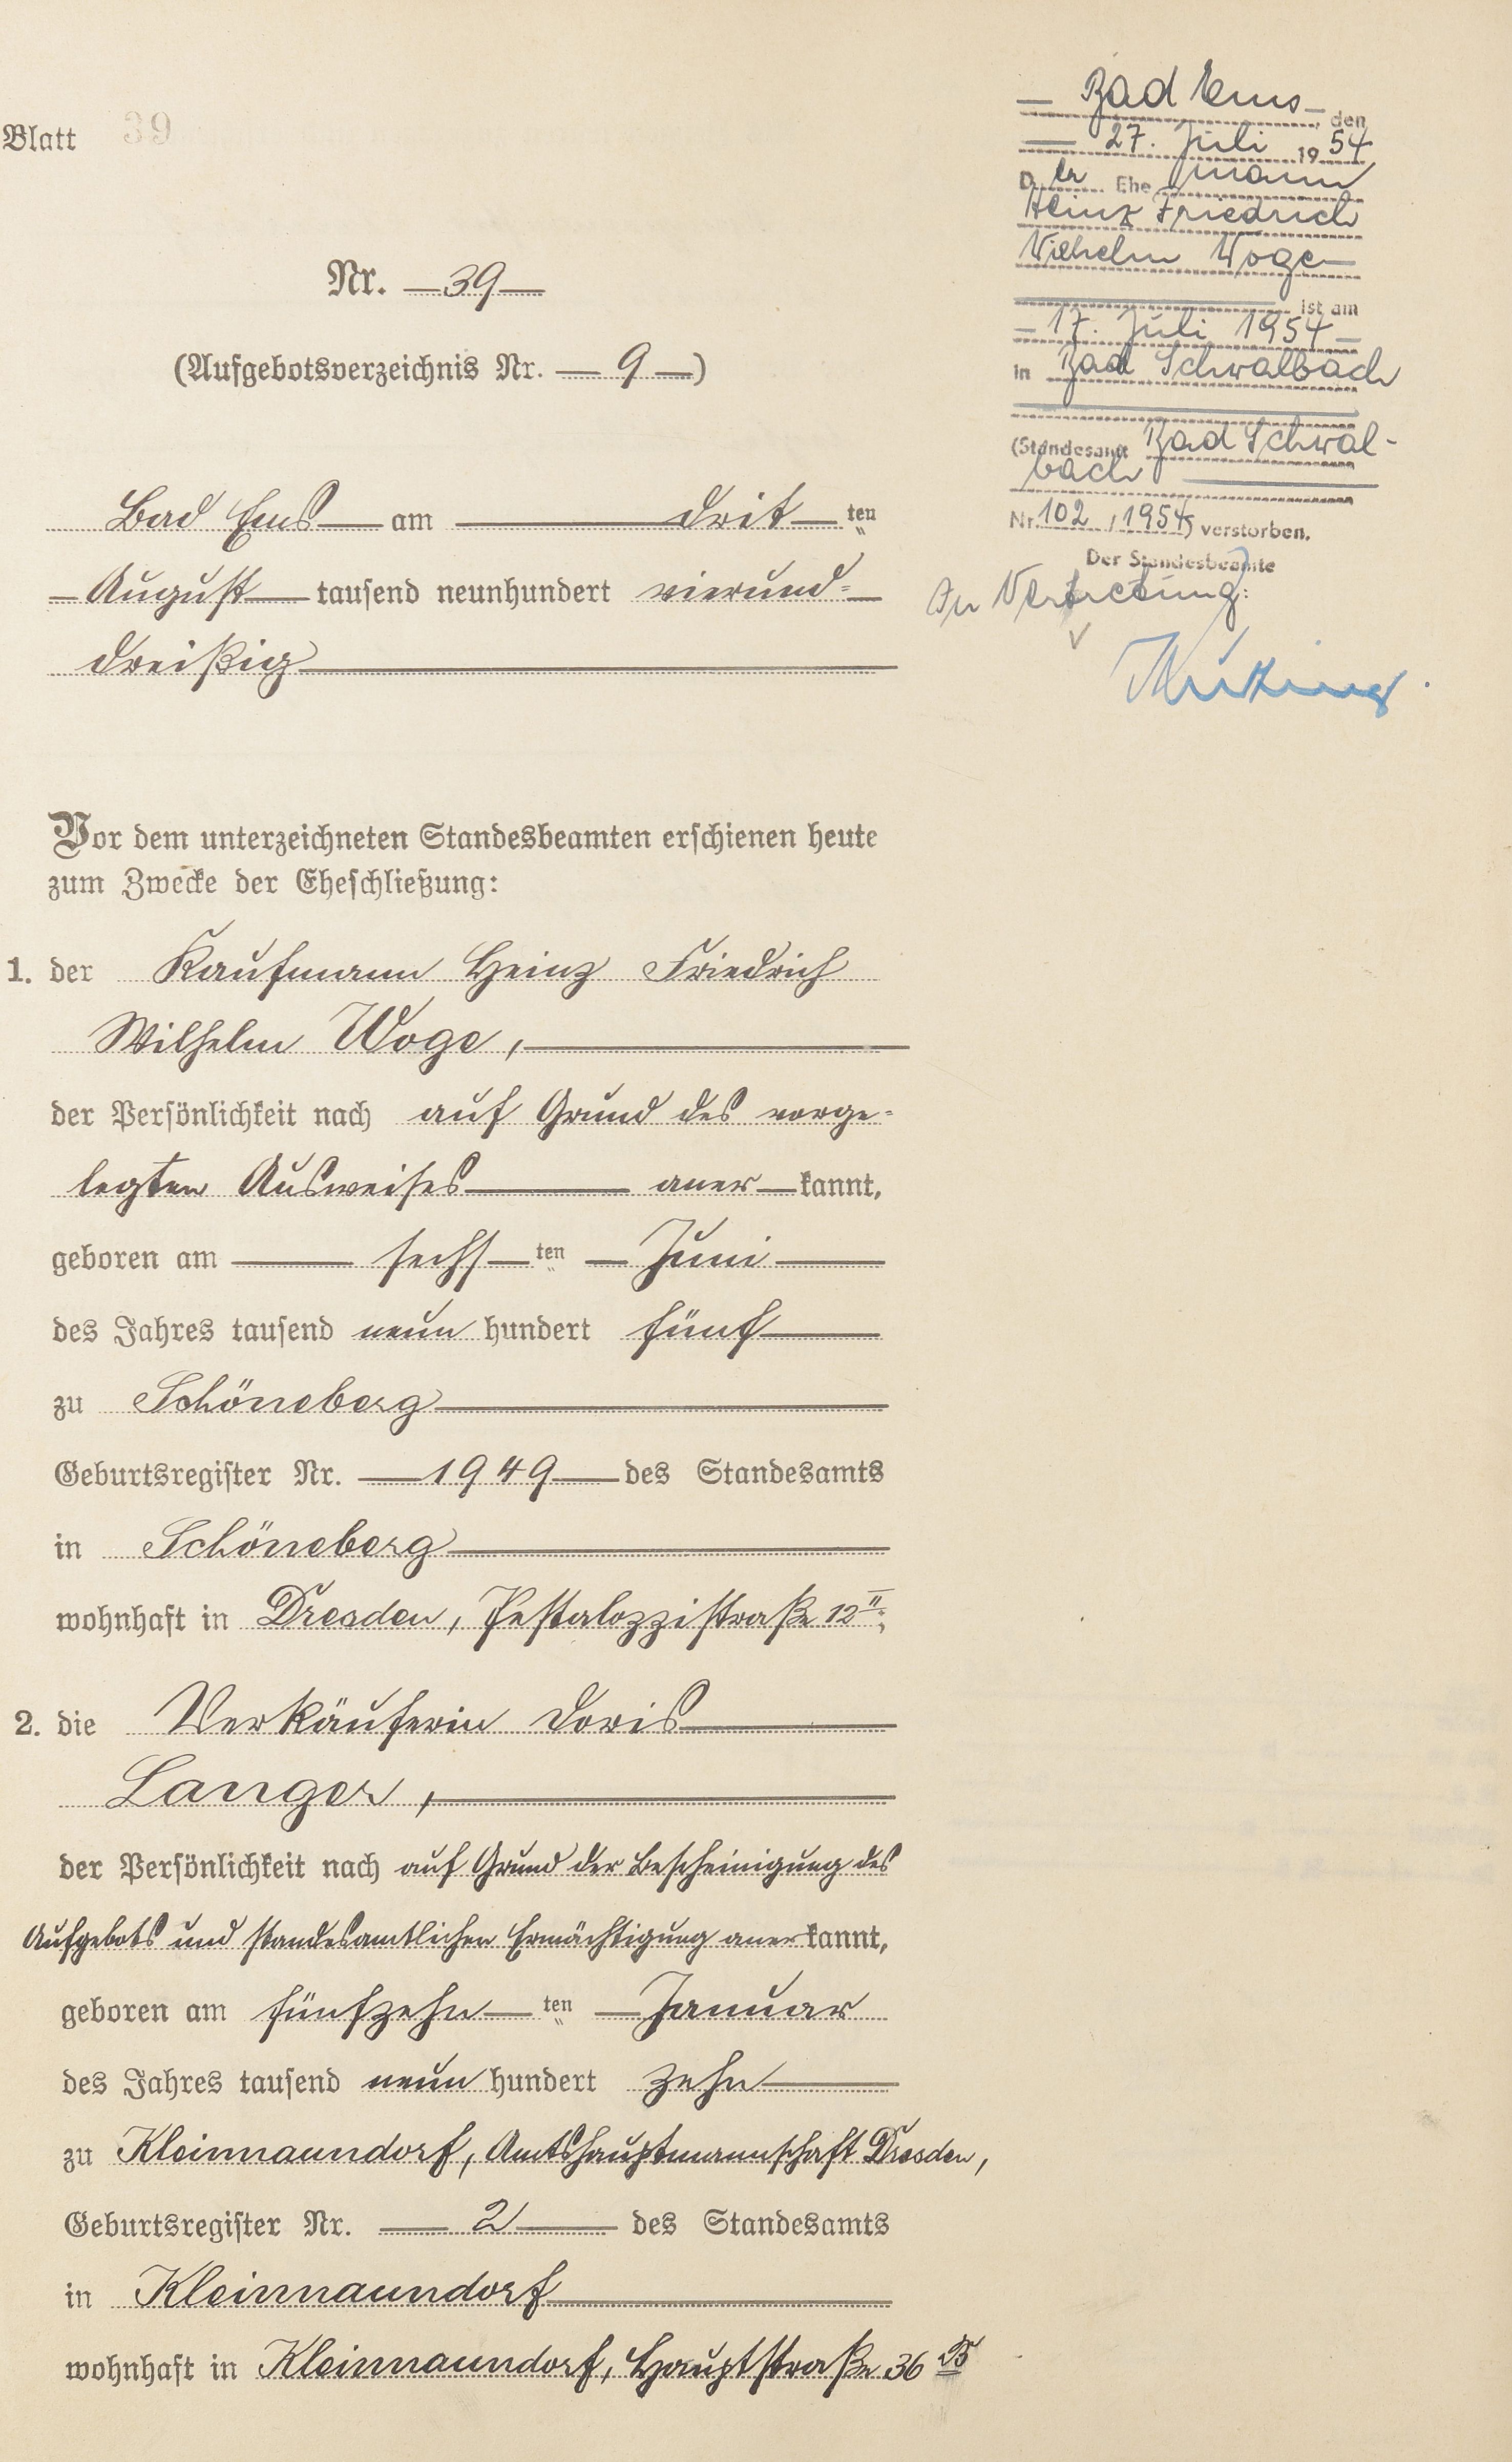 Blatt 39
Nr. 39
(Aufgebotsverzeichnis Nr. 9)
Bad Ems am drit ten
August tausend neunhundert vierund-
dreißig
Vor dem unterzeichneten Standesbeamten erschienen heute
zum Zwecke der Eheschließung:
1. der Kaufmann Heinz Friedrich
Wilhelm Woge,
der Persönlichkeit nach auf Grund des vorge-
legten Ausweises aner kannt,
geboren am sechs ten Juni
des Jahres tausend neun hundert fünf
zu Schöneberg
Geburtsregister Nr. 1949 des Standesamts
in Schöneberg
wohnhaft in Dresden, Pestalozzistraße 12 II;
2. die Verkäuferin Doris
Langer,
der Persönlichkeit nach auf Grund der Bescheinigung des
Aufgebots und standesamtlichen Ermächtigung anerkannt,
geboren am fünfzehn ten Januar
des Jahres tausend neun hundert zehn
zu Kleinnaundorf, Amtshauptmannschaft Dresden,
Geburtsregister Nr. 2 des Standesamts
in Kleinnaundorf
wohnhaft in Kleinnaundorf, Hauptstraße 36 B
Bad Ems, den
27. Juli 1954
Der Ehemann
Heinz Friedrich
Wilhelm Woge
ist am
17. Juli 1954
in Bad Schwalbach
(Standesamt Bad Schwal-
bach
Nr. 102/1954) verstorben.
Der Standesbeamte
In Vertretung: